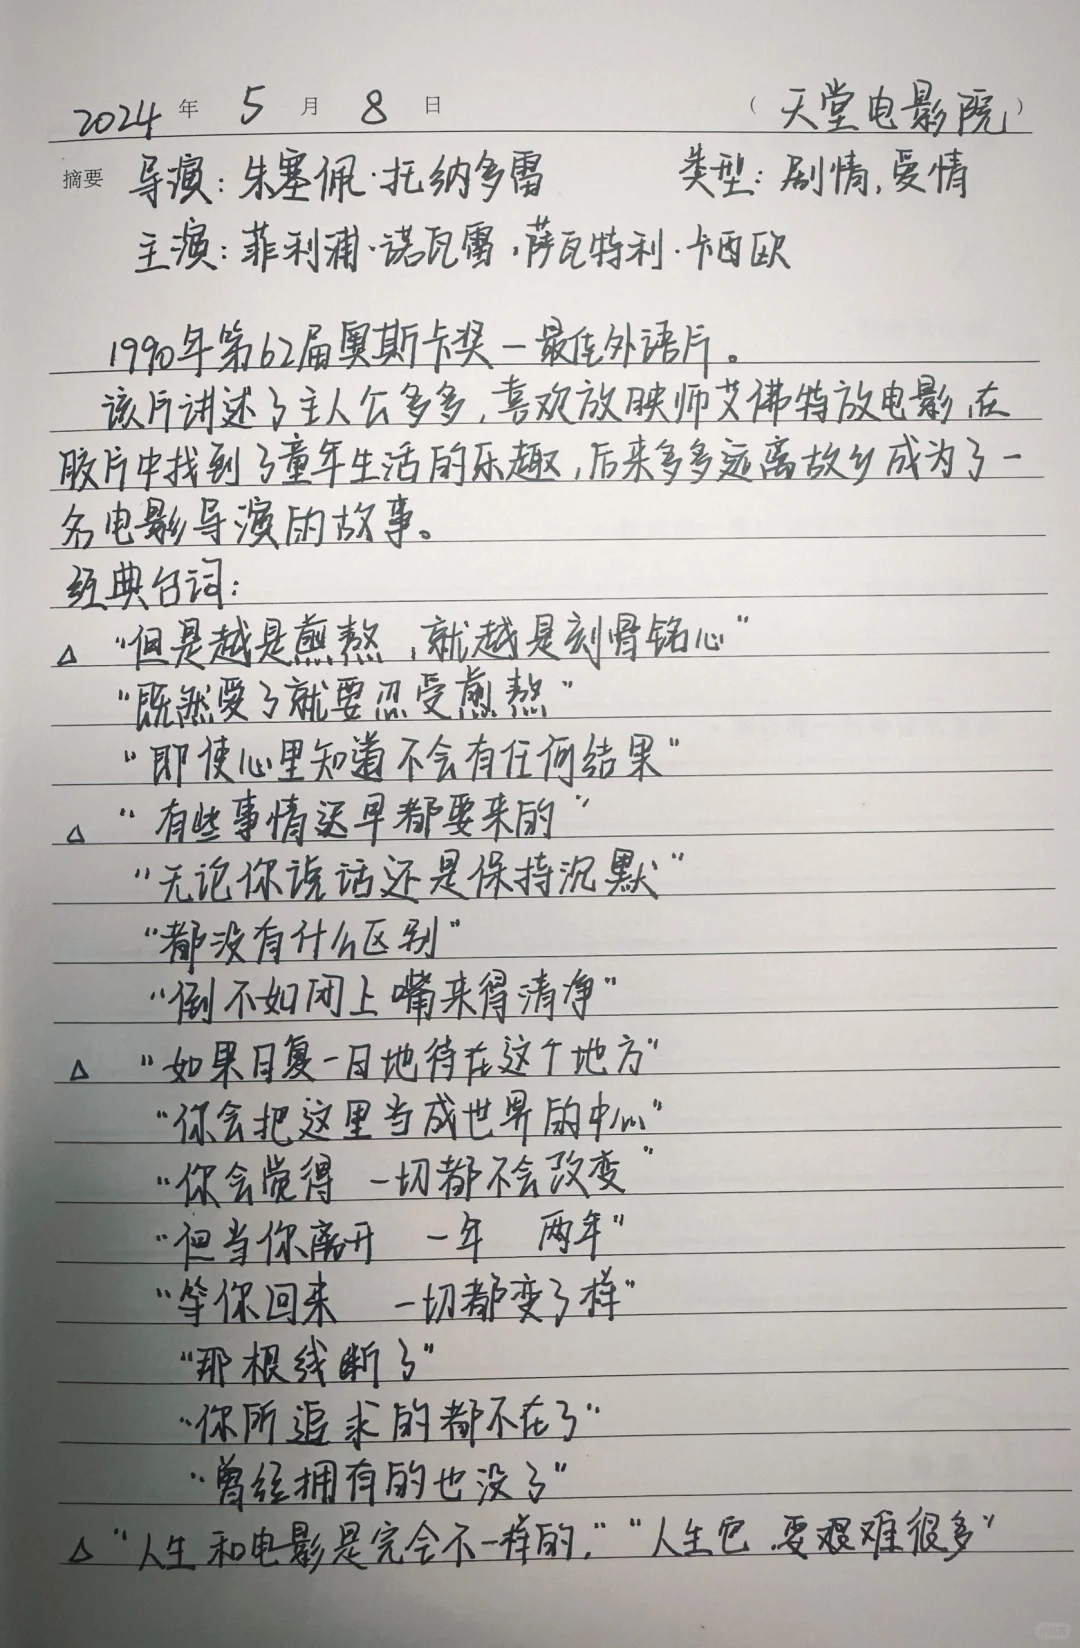 2024 年 5 月 8 日 （天堂电影院）
摘要 导演：朱塞佩·托纳多雷 类型：剧情，爱情
主演：菲利浦·诺瓦雷，萨瓦特利·卡西欧
1990年第62届奥斯卡奖－最佳外语片。
该片讲述了主人公多多，喜欢放映师艾佛特放电影，在
胶片中找到了童年生活的乐趣，后来多多远离故乡成为了一
名电影导演的故事。
经典台词：
△ “但是越是煎熬，就越是刻骨铭心”
“既然爱了就要忍受煎熬”
“即使心里知道不会有任何结果”
△ “有些事情迟早都要来的”
“无论你说话还是保持沉默”
“都没有什么区别”
“倒不如闭上嘴来得清净”
△ “如果日复一日地待在这个地方”
“你会把这里当成世界的中心”
“你会觉得 一切都不会改变”
“但当你离开 一年 两年”
“等你回来 一切都变了样”
“那根线断了”
“你所追求的都不在了”
“曾经拥有的也没了”
△ “人生和电影是完全不一样的，” “人生它，要艰难很多”